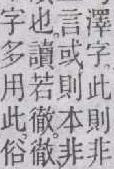 澤字此則非
言或則本非
也讀若徹徹
字多用此俗